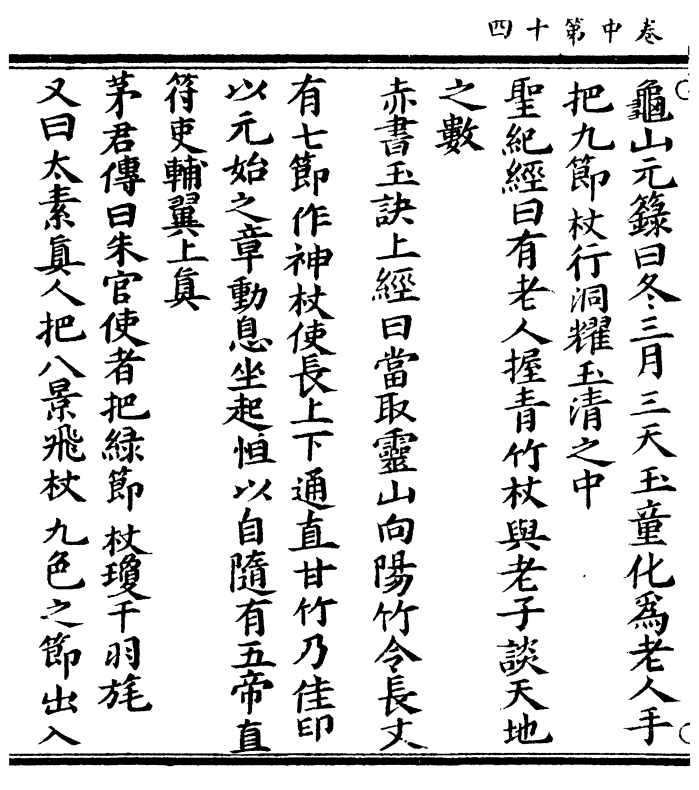 卷中第十四
龜山元籙曰冬三月三天玉童化爲老人手
把九節杖行洞耀玉清之中
聖紀經曰有老人握青竹杖與老子談天地
之數
赤書玉訣上經曰當取靈山向陽竹令長丈
有七節作神杖使長上下通直甘竹乃佳印
以元始之章動息坐起恒以自隨有五帝直
符吏輔翼上真
茅君傳曰朱官使者把緑節杖瓊千羽旄
又曰太素真人把八景飛杖九色之節出入